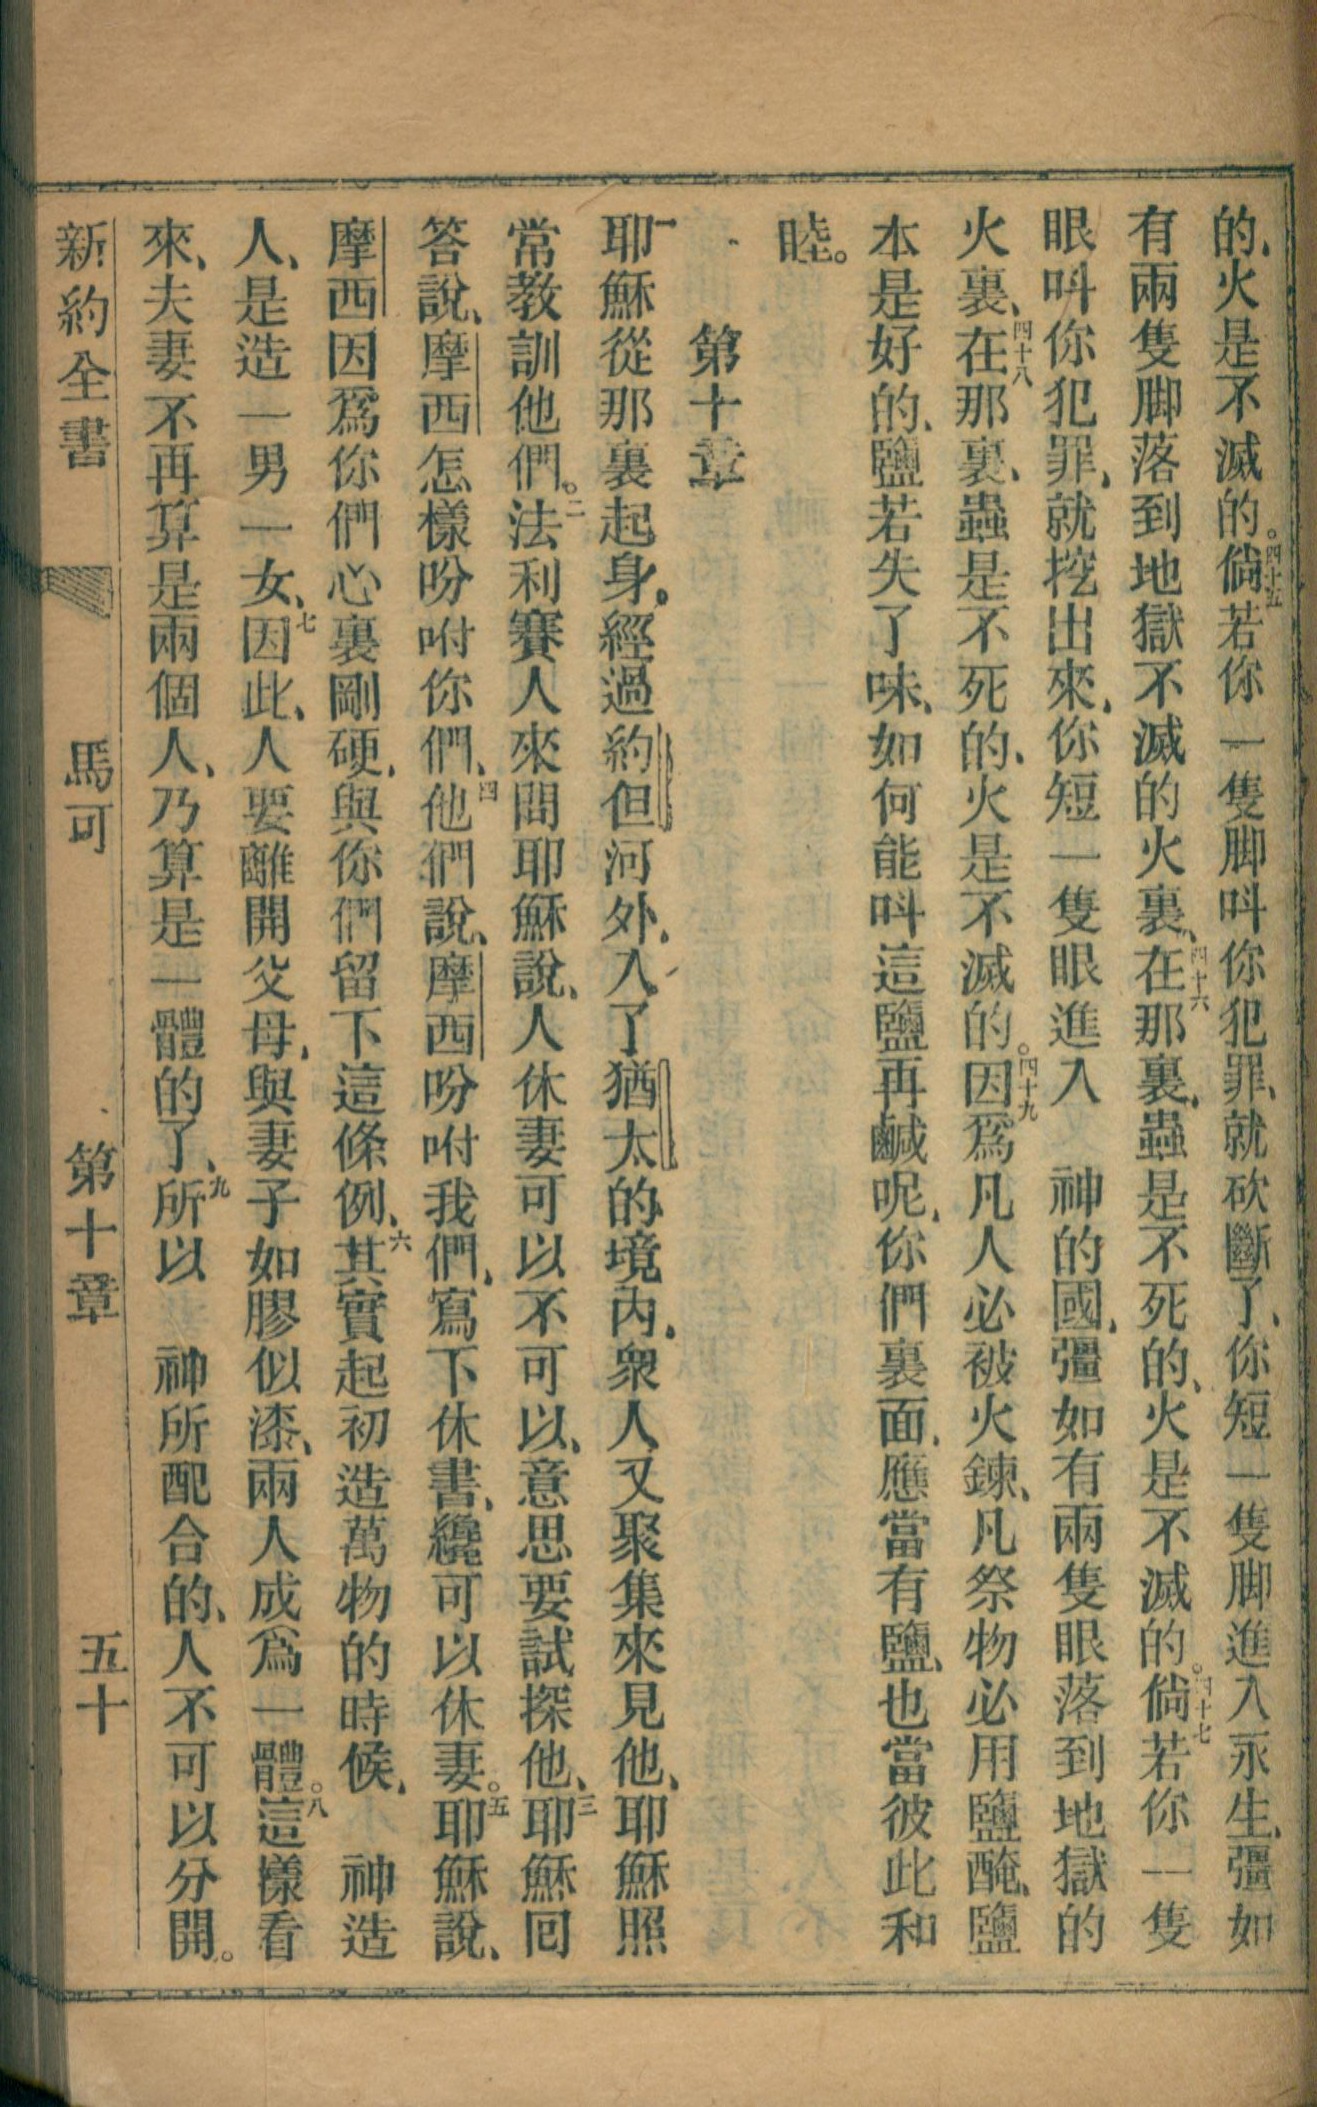 的、火是不滅的。四十五倘若你一隻脚呌你犯罪、就砍斷了、你短一隻脚進入永生、彊如
有兩隻脚落到地獄不滅的火裏、四十六在那裏、蟲是不死的、火是不滅的。四十七倘若你一隻
眼呌你犯罪、就挖出來、你短一隻眼進入　神的國、彊如有兩隻眼落到地獄的
火裏、四十八在那裏、蟲是不死的、火是不滅的。四十九因爲凡人必被火鍊、凡祭物必用鹽醃、鹽
本是好的、鹽若失了味、如何能呌這鹽再鹹呢、你們裏面、應當有鹽、也當彼此和
睦。
第十章
一耶穌從那裏起身、經過約但河外、入了猶太的境內、衆人又聚集來見他、耶穌照
常教訓他們。二法利賽人來問耶穌說、人休妻可以不可以、意思要試探他、三耶穌回
答說、摩西怎樣吩咐你們、四他們說、摩西吩咐我們、寫下休書、纔可以休妻。五耶穌說、
摩西因爲你們心裏剛硬、與你們留下這條例、六其實起初造萬物的時候、　神造
人、是造一男一女、七因此、人要離開父母、與妻子如膠似漆、兩人成爲一體。八這樣看
來、夫妻不再算是兩個人、乃算是一體的了、九所以　神所配合的、人不可以分開。
新約全書　馬可　第十章　五十